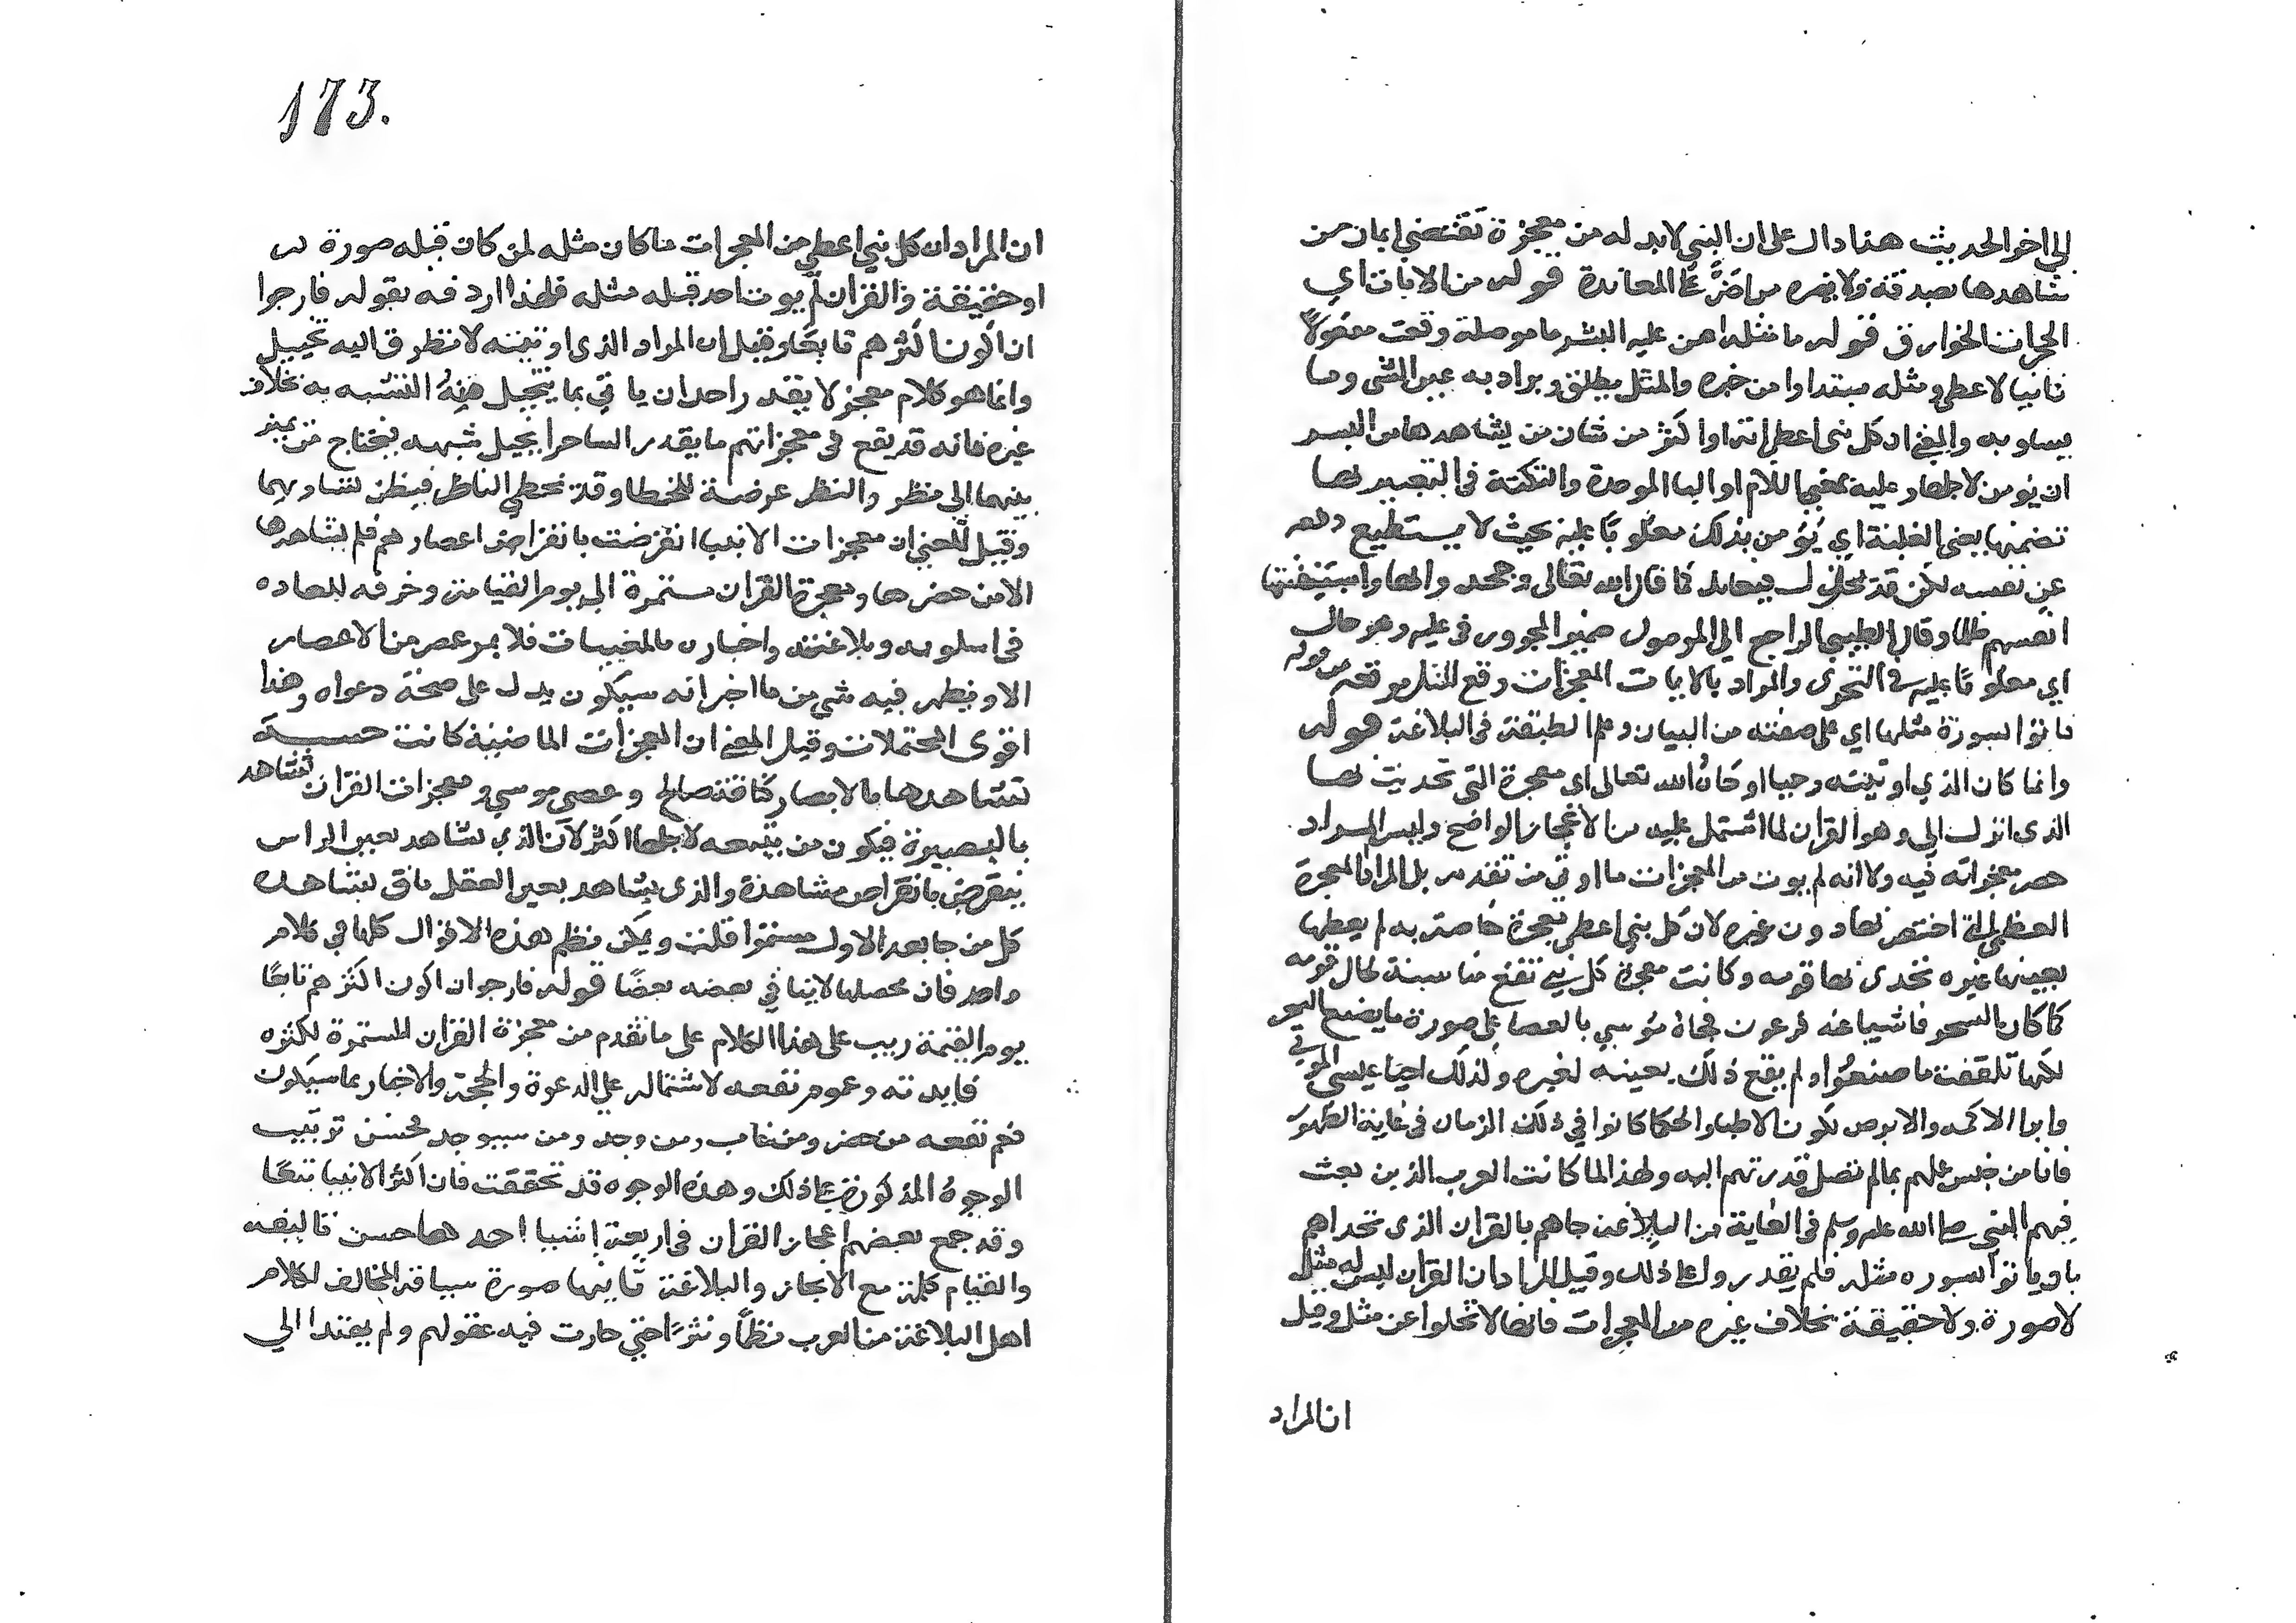 الي اخر الحديث هذا دال على ان النبي لا بد له من معجزة تقتضي ايمان من
شاهدها بصدقه ولا يضره من اصر على المعاندة قوله من الايات اي
المعجزات الخوارق قوله ما مثله امن عليه البشر ما موصلة وقعت مفعولا
ثانيا لاعطي ومثله مبتدا وا من خبره والمثل يطلق ويراد به عين الشي وما
يساويه والمعني ان كل نبي اعطي اية او اكثر من شان من يشاهدها من البسر
ان يومن لاجلها وعليه بمعني اللام او البا الموحدة والنكتة في التعبير بها
تضمنها معنى الغلبة اي يؤمن بذلك مغلوبا عليه بحيث لا يستطيع دفعه
عن نفسه لكن قد فيعاند كما قال الله تعالى وجحدوا بها واستيقنتها
انفسهم ظلما وقال الطيبي الراجع الي الموصول ضمير المجرور في عليه وهو حال
اي مغلوبا عليه في التحدي والمراد بالايات المعجزات وقع المثل موقعه من قوله
فاتوا بسورة مثلها اي على صفته من البيان وعلم الطبقة في البلاغة قوله
وانما كان الذي اوتيته وحيا اوحاه الله تعالى اي معجزة التي تحديت بها
الذي انزل الي وهو القران لما اشتمل عليه من الاعجاز الواضح وليس المراد
حصر معجزاته فيه ولا انه لم يوت من المعجزات ما اوتي من تقدم بل المراد المعجزة
العظمي التي اختص بها دون غيره لان كل نبي اعطي معجزة خاصة به لم يعطها
بعينها غيره تحدى بها قومه وكانت معجزة كل نبي تقع مناسبة لحال قومه
كما كان السحر فاشيا عند فرعون فجاه موسي بالعصا على صورة ما يصنع السحر
لكنها تلقفت ما صنعوا ولم يقع ذلك بعينه لغيره ولذلك احيا عيسى الموتي
وابرا الاكمه والابرص لكون الاطبا والحكما كانوا في ذلك الزمان في غاية الظهور
فاتا من جنس علمهم بما لم تصل قدرتهم اليه ولهذا لما كانت العرب الذين بعث
فيهم النبي صلى الله عليه وسلم في الغاية من البلاغة جاهم بالقران الذي تحداهم
بان ياتوا بسوره مثله فلم يقدروا على ذلك وقيل المراد ان القران ليس له مثل
لا صورة ولا حقيقة بخلاف غيره من المعجزات فانها لا تخلوا عن مثل وقيل
ان المراد
173.
ان المراد ان كل نبي اعطي من المعجزات ما كان مثله لمن كان قبله صورة
او حقيقة والقران لم يوت احد قبله مثله فلهذا اردفه بقوله فارجوا
ان اكون اكثرهم تابعا وقيل ان المراد الذي اوتيته لا تطرق اليه تخييل
وانما هو كلام معجز لا يقدر احد ان ياتي بما يتخيل منه التشبه به بخلاف
غيره فانه قد يقع في معجزاتهم ما يقدر الساحر ان يخيل شبهه فيحتاج من يميز
بينهما الي نظر والنظر عرضة للخطا وقد يخطي الناظر فيظن تساويهما
وقيل المعني ان معجزات الانبيا انقرضت بانقراض اعصارهم فلم يشاهدها
الا من حضرها ومعجزة القران مستمرة الي يوم القيامة وخرقه للعاده
في اسلوبه وبلاغته واخباره بالمغيبات فلا يمر عصر من الاعصار
الا ويظهر فيه شي من ما اخبر انه سيكون يدل على صحة دعواه وهذا
اقوى المحتملات وقيل المعني ان المعجزات الماضية كانت حسية
تشاهدها بالابصار كناقة صالح وعصى موسي ومعجزات القران تشاهد
بالبصيرة فيكون من يتبعه لاجلها اكثر لان الذي يشاهد بعين الراس
ينقرض بانقراض مشاهدة والذي يشاهد بعين العقل باق يشاهده
كل من جا بعد الاول مستمرا قلت ويمكن نظم هذه الاقوال كلها في كلام
واحد فان محصلها لا ينافي بعضه بعضا قوله فارجوا ان اكون اكثرهم تابعا
يوم القيمة رتب على هذا الكلام على ما تقدم من معجزة القران المستمرة لكثره
فايدته وعموم نفعه لاشتماله على الدعوة والحجة والاخبار بما سيكون
فعم نفعه من حضر ومن غاب ومن وجد ومن سيوجد فحسن ترتيب
الوجوه المذكورة على ذلك وهذه الوجوه قد تحققت فان اكثر الانبيا تبعا
وقد جمع بعضهم اعجاز القران في اربعة اشيا احدها حسن تاليفه
والتيام كلمه مع الايجاز والبلاغة ثانيها صورة سياقه المخالف لكلام
اهل البلاغة من العرب نظما ونثرا حتي حارت فيه عقولهم ولم يهتدا الي